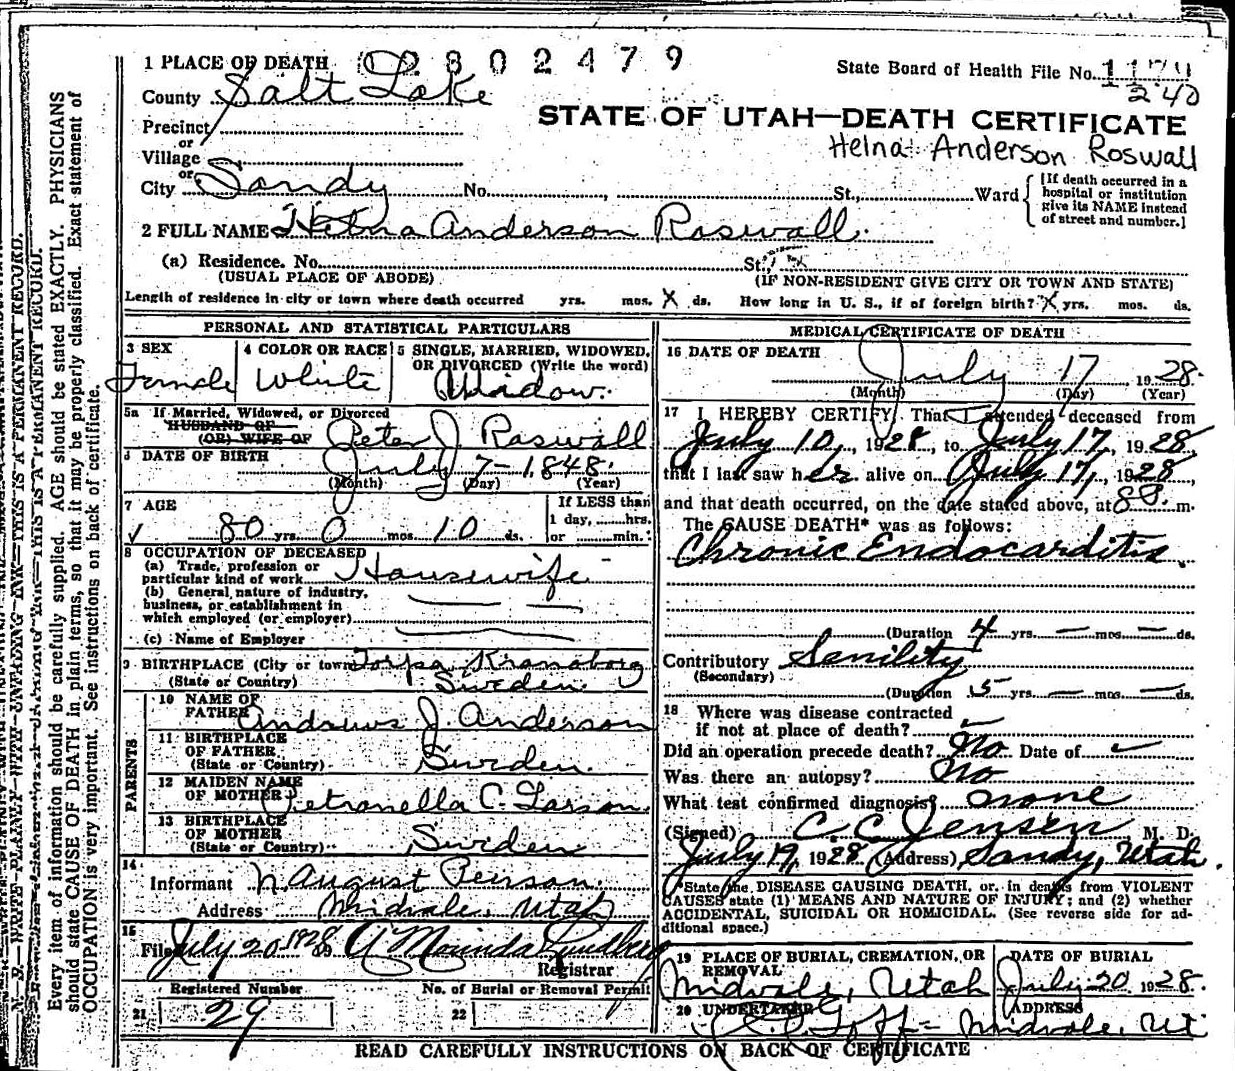 1 PLACE OF DEATH 02802479
State Board of Health File No. 1174
240
County Salt Lake
STATE OF UTAH—DEATH CERTIFICATE
Precinct
or
Helna Anderson Roswall
Village
or
City Sandy No. , St., Ward
[If death occurred in a
hospital or institution
give its NAME instead
of street and number.]
2 FULL NAME Helna Anderson Roswall.
(a) Residence. No. St.,
(USUAL PLACE OF ABODE) (IF NON-RESIDENT GIVE CITY OR TOWN AND STATE)
Length of residence in city or town where death occurred yrs. mos. X ds. How long in U. S., if of foreign birth? X yrs. mos. ds.
PERSONAL AND STATISTICAL PARTICULARS
3 SEX 4 COLOR OR RACE 5 SINGLE, MARRIED, WIDOWED,
OR DIVORCED (Write the word)
Female White Widow.
5a If Married, Widowed, or Divorced
HUSBAND OF
(OR) WIFE OF Peter J Raswall
6 DATE OF BIRTH July 7-1848.
(Month) (Day) (Year)
7 AGE If LESS than
1 day, hrs.
80 yrs. 0 mos. 10 ds. or min.
8 OCCUPATION OF DECEASED
(a) Trade, profession or
particular kind of work Housewife
(b) General nature of industry,
business, or establishment in
which employed (or employer)
(c) Name of Employer
9 BIRTHPLACE (City or town) Torpa Kranaborg
(State or Country) Sweden.
PARENTS
10 NAME OF
FATHER Andrews J. Anderson
11 BIRTHPLACE
OF FATHER
(State or Country) Sweden.
12 MAIDEN NAME
OF MOTHER Petronella C. Larson.
13 BIRTHPLACE
OF MOTHER
(State or Country) Sweden
14
Informant N. August Peirson.
Address Midvale, Utah
15
Filed July 20 1928 A Morinda Lindberg
Registrar
Registered Number No. of Burial or Removal Permit
21 29 22
MEDICAL CERTIFICATE OF DEATH
16 DATE OF DEATH
July 17 1928.
(Month) (Day) (Year)
17 I HEREBY CERTIFY, That I attended deceased from
July 10, 1928, to July 17, 1928
that I last saw her alive on July 17, 1928,
and that death occurred, on the date stated above, at 8 P. m.
The CAUSE DEATH* was as follows:
Chronic Endocarditis.
(Duration 4 yrs. — mos — ds.
Contributory Sanility
(Secondary)
(Duration 5 yrs. — mos. — ds.
18 Where was disease contracted
if not at place of death?
Did an operation precede death? No Date of
Was there an autopsy? No
What test confirmed diagnosis? none
(Signed) C. C. Jensen, M. D.
July 19, 1928 (Address) Sandy, Utah.
*State the DISEASE CAUSING DEATH, or, in deaths from VIOLENT
CAUSES state (1) MEANS AND NATURE OF INJURY; and (2) whether
ACCIDENTAL, SUICIDAL OR HOMICIDAL. (See reverse side for ad-
ditional space.)
19 PLACE OF BURIAL, CREMATION, OR
REMOVAL
Midvale, Utah
DATE OF BURIAL
July 20 1928.
20 UNDERTAKER
Goff = Midvale, Ut
ADDRESS
READ CAREFULLY INSTRUCTIONS ON BACK OF CERTIFICATE
N. B.—WRITE PLAINLY WITH UNFADING INK—THIS IS A PERMANENT RECORD.
Every item of information should be carefully supplied. AGE should be stated EXACTLY. PHYSICIANS
should state CAUSE OF DEATH in plain terms, so that it may be properly classified. Exact statement of
OCCUPATION is very important. See instructions on back of certificate.